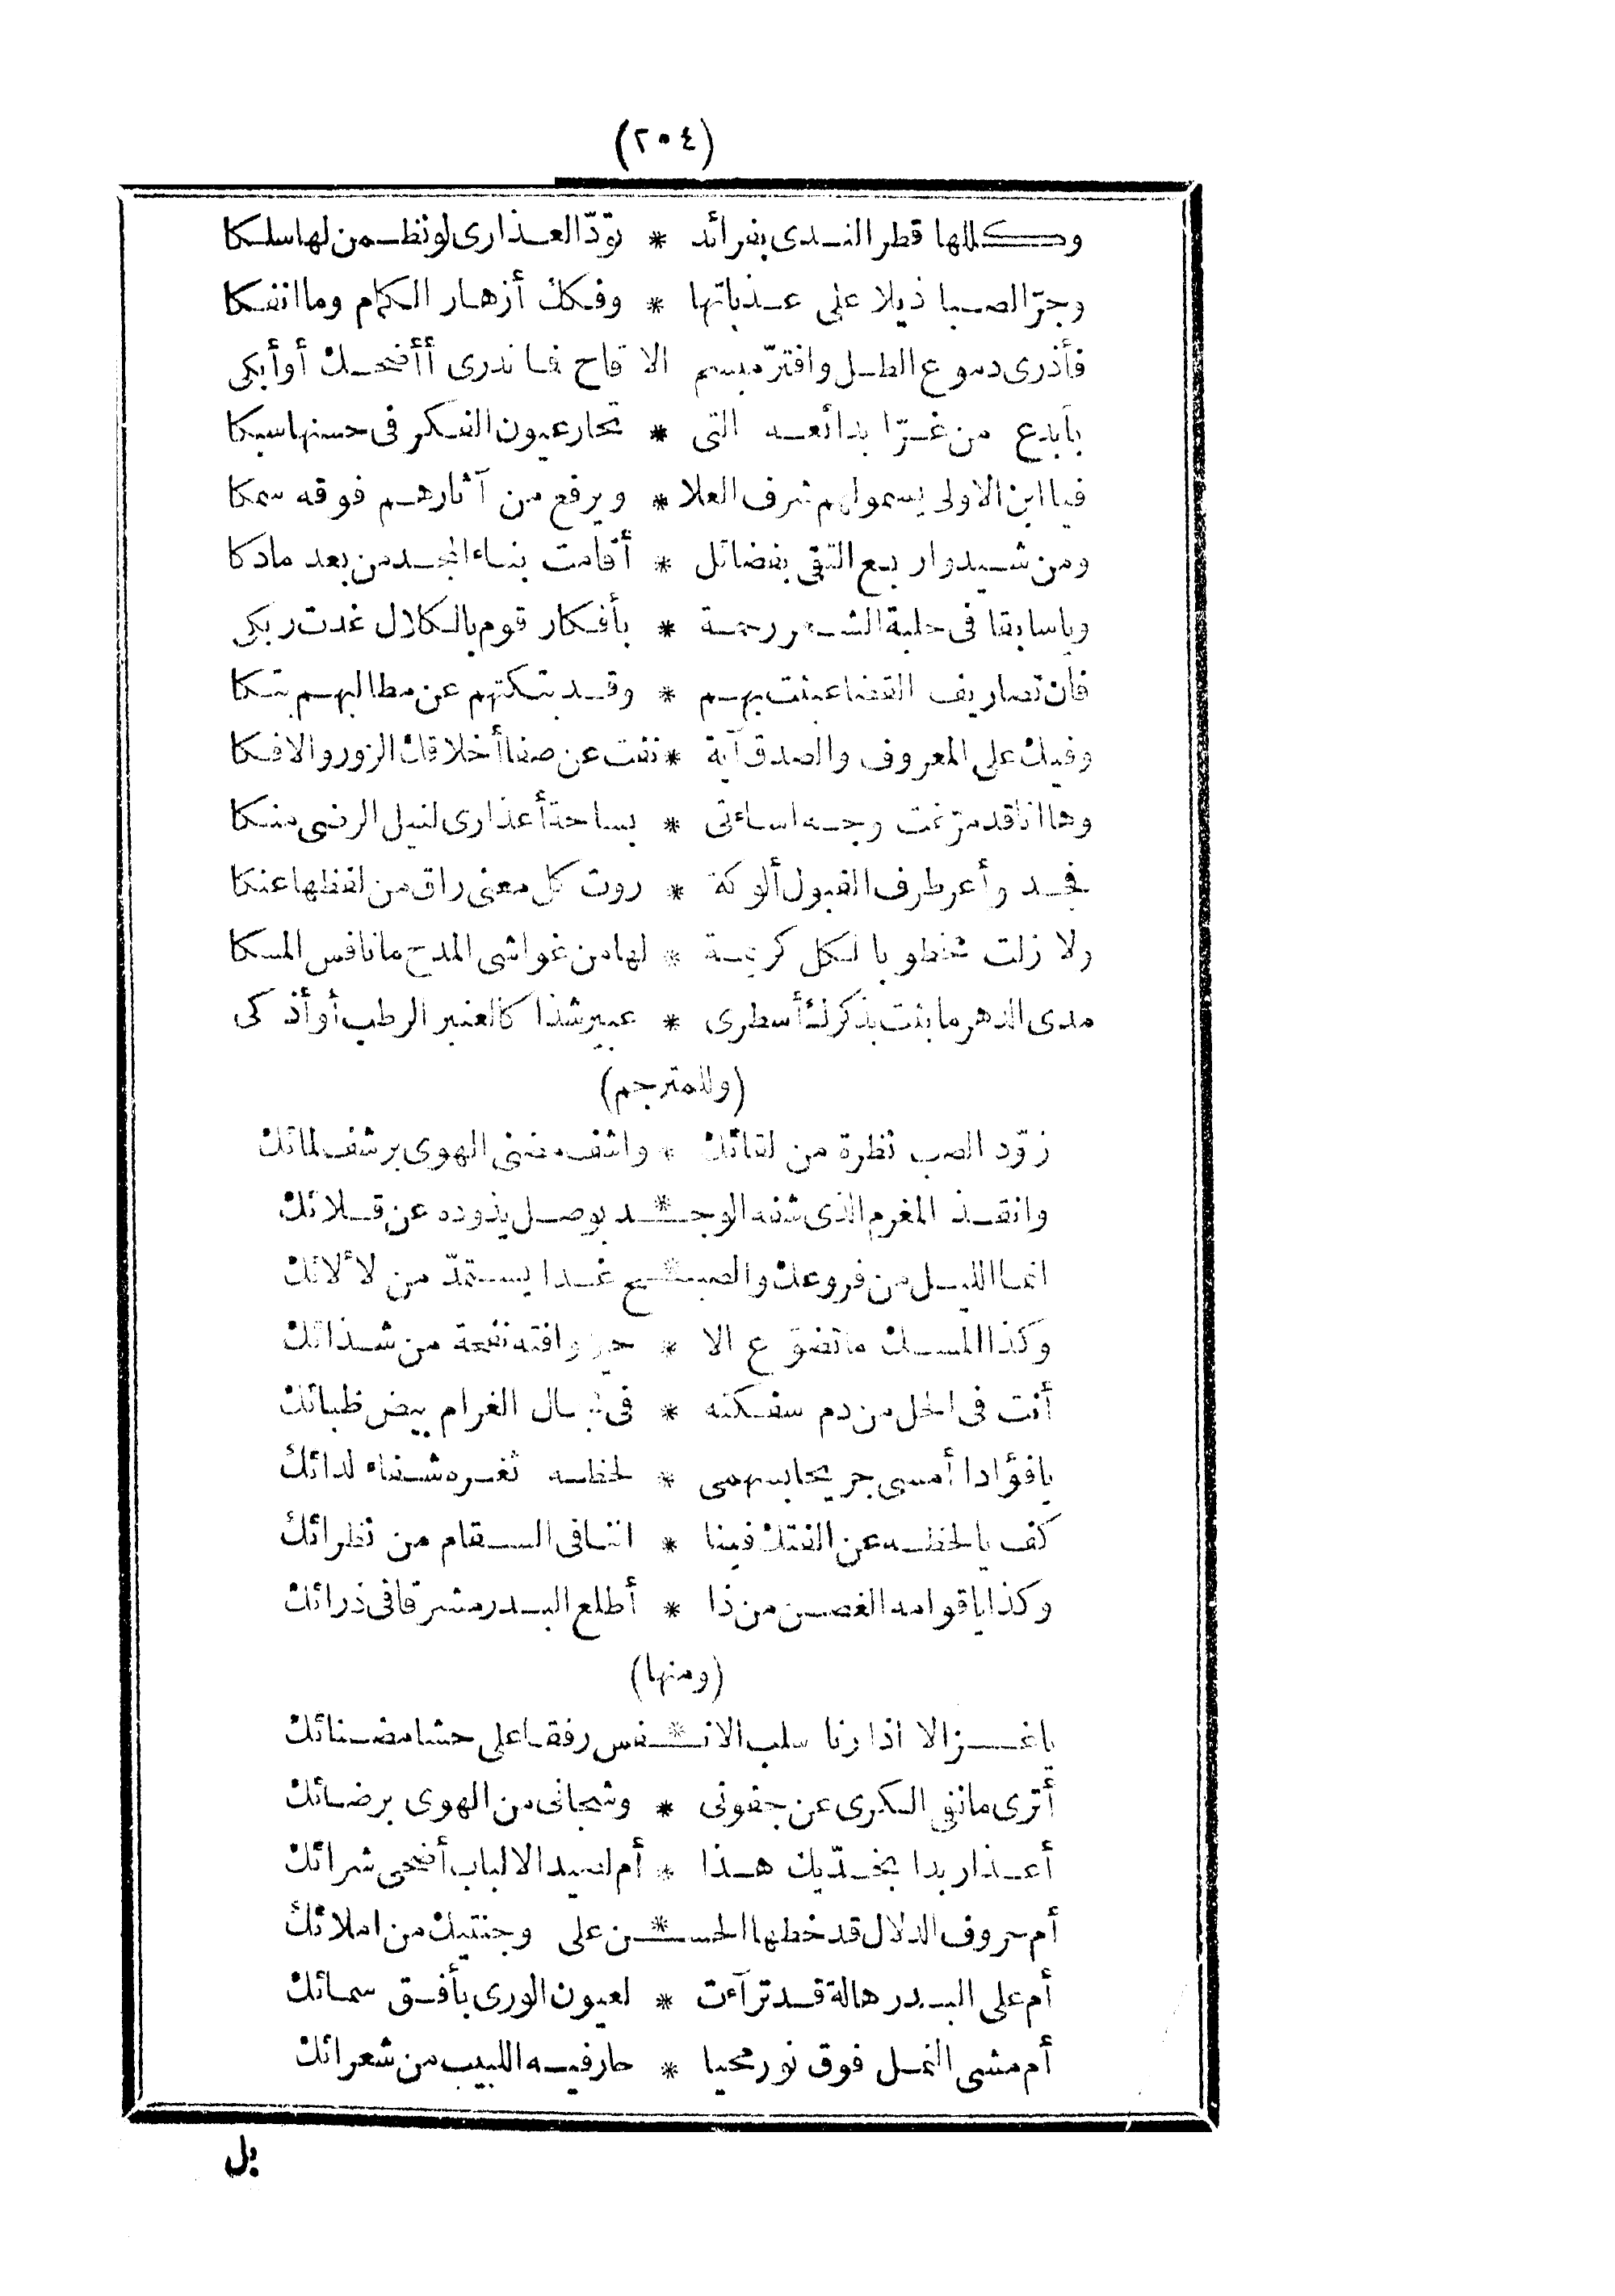 (٢٠٤)
وكللها قطر الندى بفرائد * تودّ العذارى لو نظمن لها سلكا
وجرّ الصبا ذيلا على عذباتها * وفكك أزهار الكمام وما انفكا
فأذرى دموع الطل وافترّ مبسم الاقاح فما ندرى أأضحك أو أبكى
بأبدع من غرّا بدائعه التى * تحار عيون الفكر فى حسنها سبكا
فيا ابن الاولى يسمو لهم شرف العلا * ويرفع من آثارهم فوقه سمكا
ومن شيدوا ربع التقى بفضائل * أقامت بناء المجد من بعد مادكا
ويا سابقا فى حلبة الشعر رحمة * بأفكار قوم بالكلال غدت ربكى
فان تصاريف القضا عبثت بهم * وقد بتكتهم عن مطالبهم بتكا
وفيك على المعروف والصدق آية * نفت عن صفا أخلاقك الزور والافكا
وها انا قد مرّغت وجه اساءتى * بساحة أعذارى لنيل الرضى منكا
فجد وأعر طرف القبول ألوكة * روت كل معنى راق من لفظها عنكا
ولا زلت مخطوبا لكل كريمة * لها من غواشى المدح ما نافس المسكا
مدى الدهر ما بثت بذكرك أسطرى * عبير شذا كالعنبر الرطب أو أذكى
(وللمترجم)
زوّد الصب نظرة من لقائك * واشف مضنى الهوى برشف لمائك
وانقذ المغرم الذى شفه الوجـ * ـد بوصل يذوده عن قلائك
انما الليل من فروعك والصبـ * ـح غدا يستمدّ من لألائك
وكذا المسك ما تضوّع الا * حين وافته نفحة من شذائك
أنت فى الحل من دم سفكته * فى سبال الغرام بيض ظبائك
يا فؤادا أمسى جريحا بسهمى * لحظه ثغره شفاء لدائك
كف يا لحظه عن الفتك فينا * اننا فى السقام من نظرائك
وكذا يا قوامه الغصن من ذا * أطلع البدر مشرقا فى ذرائك
(ومنها)
يا غزالا اذا رنا سلب الانـ * ـفس رفقا على حشا مضنائك
أترى ما نفى الكرى عن جفونى * وشجانى من الهوى برضائك
أعذار بدا بخدّيك هذا * أم لصيد الالباب أضحى شرائك
أم حروف الدلال قد خطها الحسـ * ـن على وجنتيك من املائك
أم على البدر هالة قد ترآءت * لعيون الورى بأفق سمائك
أم مشى النمل فوق نور محيا * حار فيه اللبيب من شعرائك
بل